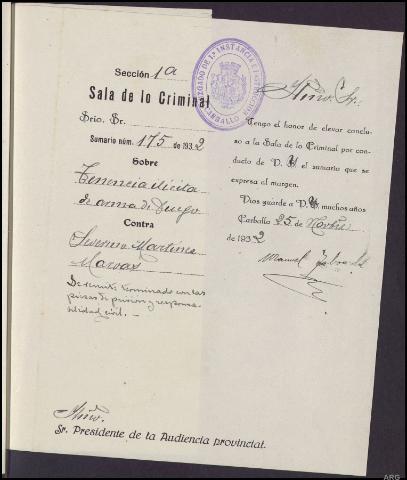 Sección 1a
Sala de lo Criminal
Srio. Sr.
Sumario núm. 175 de 1932
Sobre
Tenencia ilícita
de arma de fuego
Contra
Martínez
Se remite terminado con las
piezas de prisión y respons-
abilidad civil. —
JUZGADO DE 1ª INSTANCIA E INSTRUCCION
CARBALLO
Iltmo. Sr.:
Tengo el honor de elevar conclu-
so a la Sala de lo Criminal por con-
ducto de V. Y el sumario que se
expresa al margen.
Dios guarde a V. Y muchos años
Carballo 25 de Novbre
de 1932
Manuel
Iltmo.
Sr. Presidente de la Audiencia provincial.
ARG